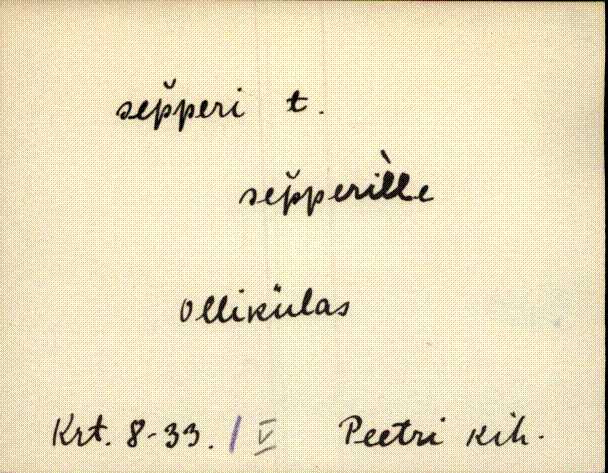 sep̆peri t.
sep̆perìlle
Ollikülas
Krt. 8-33. / V Peetri kih.